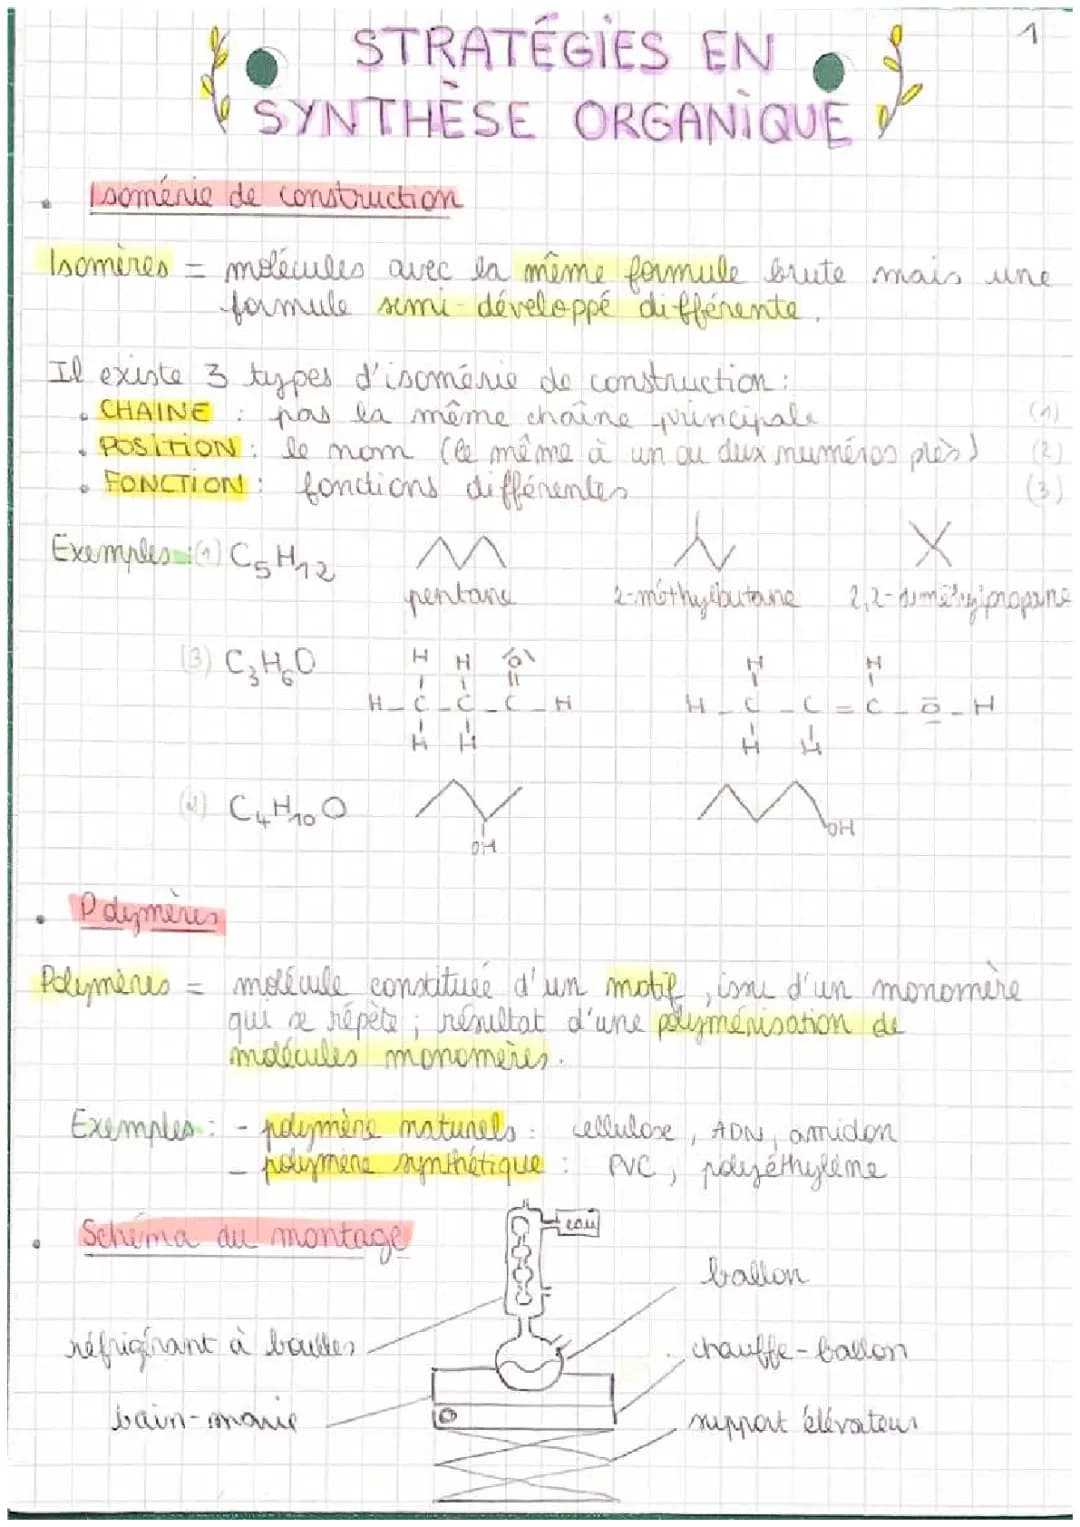 1
STRATÉGIES EN
SYNTHÈSE ORGANIQUE
Isomérie de construction
Isomères = molécules avec la même formule brute mais une
formule semi-développé différente.
Il existe 3 types d'isomérie de construction :
• CHAINE : pas la même chaîne principale (1)
• POSITION : le nom (le même à un ou deux numéros près) (2)
• FONCTION : fonctions différentes (3)
Exemples : (1) C5H12
pentane 2-méthylbutane 2,2-diméthylpropane
(3) C3H6O
H H O
H-C-C-C-H
H H
H H
H-C-C=C-O-H
H H
(2) C4H10O
OH OH
Polymères
Polymères = molécule constituée d'un motif, issu d'un monomère
qui se répète ; résultat d'une polymérisation de
molécules monomères.
Exemples : - polymère naturels : cellulose, ADN, amidon
- polymère synthétique : PVC, polyéthylène
Schéma du montage
eau
ballon
réfrigérant à boules
chauffe-ballon
bain-marie
support élévateur